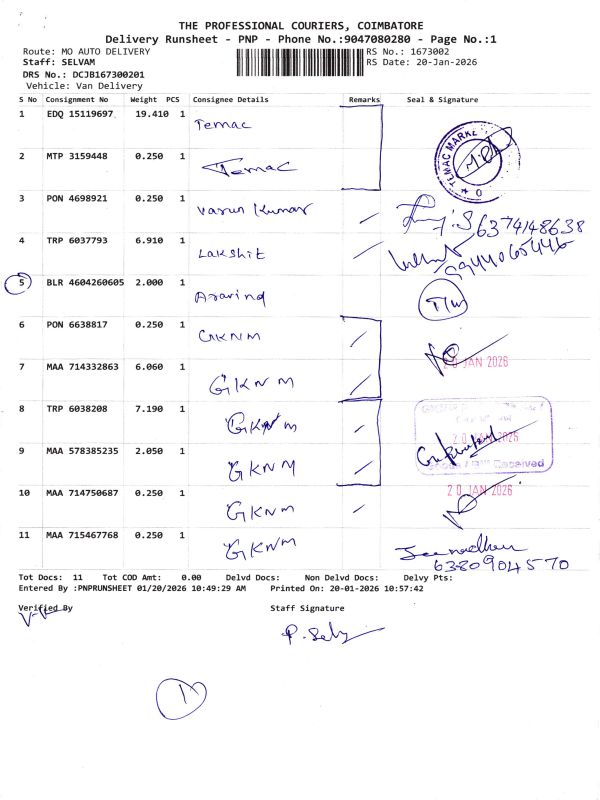 THE PROFESSIONAL COURIERS, COIMBATORE
Delivery Runsheet - PNP - Phone No.:9047080280 - Page No.:1
Route: MO AUTO DELIVERY
RS No.: 1673002
Staff: SELVAM
RS Date: 20-Jan-2026
DRS No.: DCJB167300201
Vehicle: Van Delivery
S No Consignment No Weight PCS Consignee Details Remarks Seal & Signature
1 EDQ 15119697 19.410 1 Temac
TEMAC MARKE
2 MTP 3159448 0.250 1 Temac
3 PON 4698921 0.250 1 Varun Kumar
6374148638
4 TRP 6037793 6.910 1 Lakshit
9944065446
5 BLR 4604260605 2.000 1 Aravind
6 PON 6638817 0.250 1 GKNM
7 MAA 714332863 6.060 1 GKNM
20 JAN 2026
8 TRP 6038208 7.190 1 GKNM
9 MAA 578385235 2.050 1 GKNM
Received
10 MAA 714750687 0.250 1 GKNM
20 JAN 2026
11 MAA 715467768 0.250 1 GKNM
6380904570
Tot Docs: 11 Tot COD Amt: 0.00 Delvd Docs: Non Delvd Docs: Delvy Pts:
Entered By :PNPRUNSHEET 01/20/2026 10:49:29 AM Printed On: 20-01-2026 10:57:42
Verified By Staff Signature
P. Selv